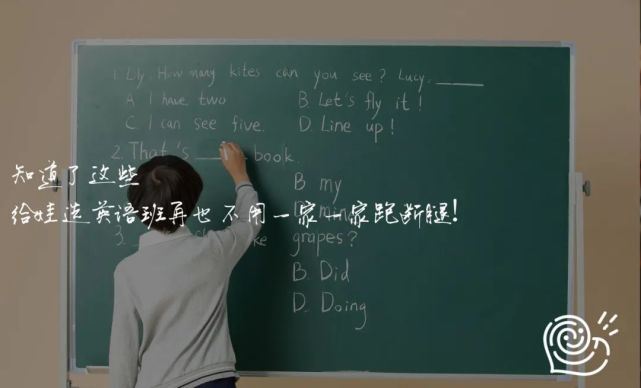 1. Lily. How many kites can you see? Lucy. ______
A. I have two B. Let's fly it!
C. I can see five. D. Line up!
2. That's ____ book.
知道了这些
B my
给娃选英语班再也不用一家一家跑断腿!
3.
grapes?
B. Did
D. Doing